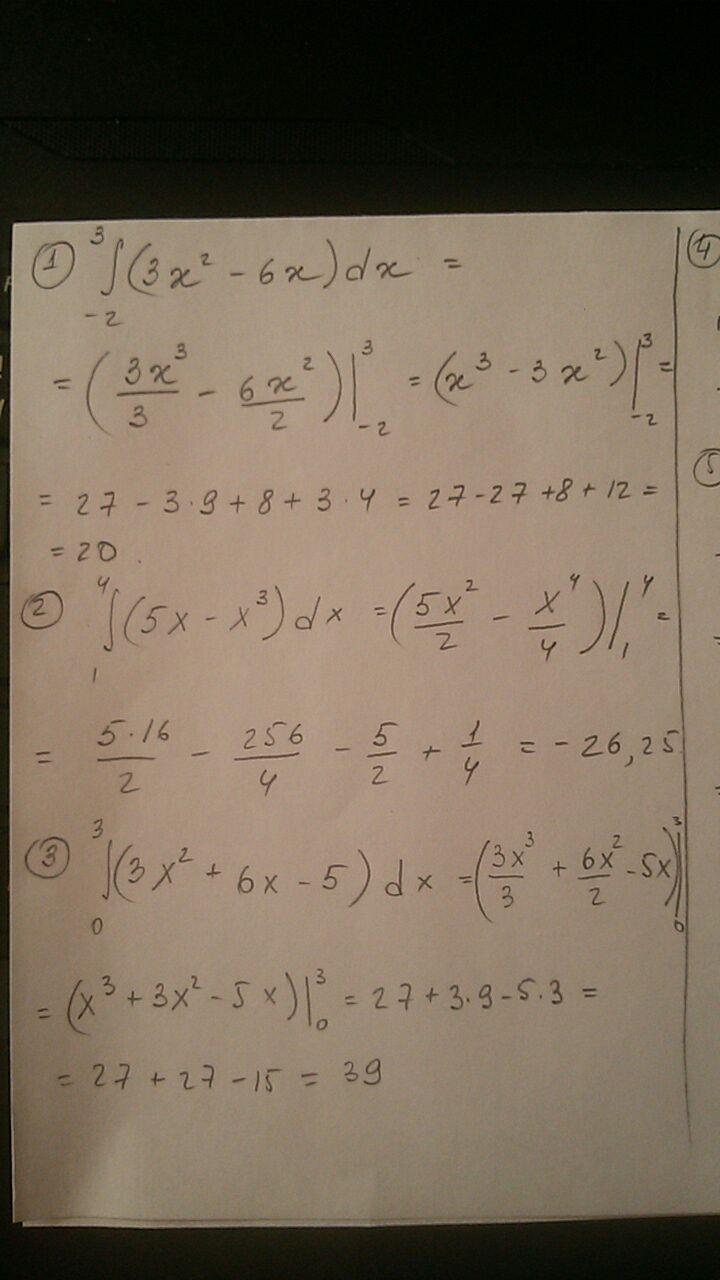 ① ∫₋₂³ (3x² - 6x) dx =
= (3x³/3 - 6x²/2) |₋₂³ = (x³ - 3x²) |₋₂³ =
= 27 - 3·9 + 8 + 3·4 = 27 - 27 + 8 + 12 =
= 20.
② ∫₁⁴ (5x - x³) dx = (5x²/2 - x⁴/4) |₁⁴ =
= 5·16/2 - 256/4 - 5/2 + 1/4 = - 26,25
③ ∫₀³ (3x² + 6x - 5) dx = (3x³/3 + 6x²/2 - 5x) |₀³
= (x³ + 3x² - 5x) |₀³ = 27 + 3·9 - 5·3 =
= 27 + 27 - 15 = 39
④
⑤